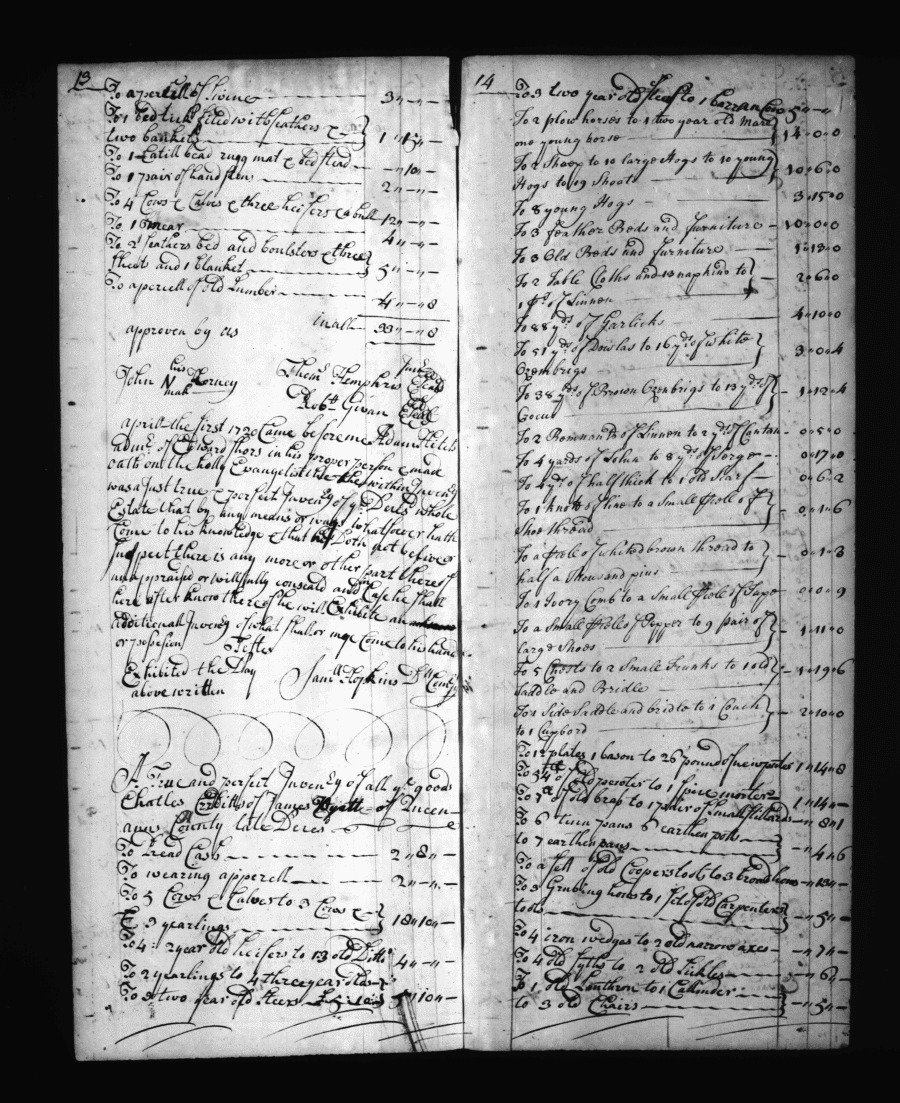 13
To a percell of
To 1 bed tick filed with feathers &
two bankets 1 " 15 " -
To 1 Catill bead rugg mat & bed stead - " 10 " -
To 1 pair of hand 2 " - " -
To 4 Cows & Calves & three heifers & a bull 12 " - " -
To 1 mear 4 " - " -
To 2 feathers bed and boulsters & three
sheets and 1 blanket 5 " - " -
To a percell of old Lumber
4 " - " 8
in all 33 " - " 8
approven by us
John his Horney
mark
Robtt Givan
Aprill the first 1720 Came before me Adam
admr. of Edward Shors in his proper person & made
oath on the holly Evangelist the within Inven:ty
was a Just true & perfect Inven:ty of ye Decds whole
Estate that by any means or ways whatsoever hath
Come to his knowledge & that he Doth not believe or
Suspect there is any more or other part thereof
unappraised or willfully conseald and in Case he shall
here after know thereof he will Exhibite an
additionall Inventy of what shall or may Come to his hands
or possesion Teste
Exhibited the Day Samll Hopkins Dty Com:ry
above written
A True and perfect Inven:ty of all ye goods
Chatles of James Wyatt of Queen
anns County late Deces
To Read Cash 2 " 8 " -
To wearing apperell 2 " - " -
To 5 Cows & Calves to 3 Cows &
3 yearlings 18 " 10 " -
To 4: 2 year old heifers to 13 old
To 2 yearlings to 4 three year olds 4 " - " -
To 3 two year old steers " 10 " -
14
To 3 two year old to 1 barran Cow 5 " - " -
To 2 plow horses to 1 two year old Mare
one young horse 14 " 0 " 0
To 2 Sheep to 10 large Hogs to 10 young
Hogs to 19 Shoats 10 " 6 " 0
To 8 young Hogs 3 " 15 " 0
To 3 feather Beds and furniture 10 " 0 " 0
To 3 Old Beds and furniture 1 " 13 " 0
To 2 Table Cloths and 13 napkins to
1 of Linnen 2 " 6 " 0
To 88 yds of Garlicks 4 " 10 " 0
To 51 yds of Dowlas to 16 yds of white
Ozenbrigs 3 " 0 " 4
To 38 yds of Brown Ozenbrigs to 13 yds of
Crocus 1 " 12 " 4
To 2 Remnants of Linnen to 2 yds of Cantan 0 " 5 " 0
To 4 yards of to 8 yds of Serge 0 " 17 " 0
To yds of halfthick to 1 old Scarf 0 " 6 " 2
To 1 knott of line to a Small of
Shoe thread 0 " 1 " 6
To a of whited brown thread to
half a thousand pins 0 " 1 " 3
To 1 Ivory Comb to a Small of Tape 0 " 0 " 9
To a Small of Pepper to 9 pair of
large Shoes 1 " 11 " 0
To 5 Chests to 2 Small Trunks to 1 old
Saddle and Bridle 1 " 19 " 6
To 1 Side Saddle and bridle to 1 Couch
to 1 Cupbord 2 " 10 " 0
To 12 plates 1 bason to 26 pound of new pewter 1 " 14 " 8
To of old pewter to 1 spice morter 1 " 14 " -
To of old bras to 1 pair of small stillards - " 8 " 1
To 6 tinn pans 6 earthen potts
to 7 earthen pans - " 4 " 6
To a sett of old Coopers tools to 3 broad hows - " 13 " -
To 3 Grubing hows to 1 set of old Carpenters
tools - " 5 " -
To 4 iron wedges to 2 old narrow axes - " 7 " -
To 4 old syths to 2 old sickles - " 6 " -
To 1 old to 1
to 3 old Chairs - " 5 " -